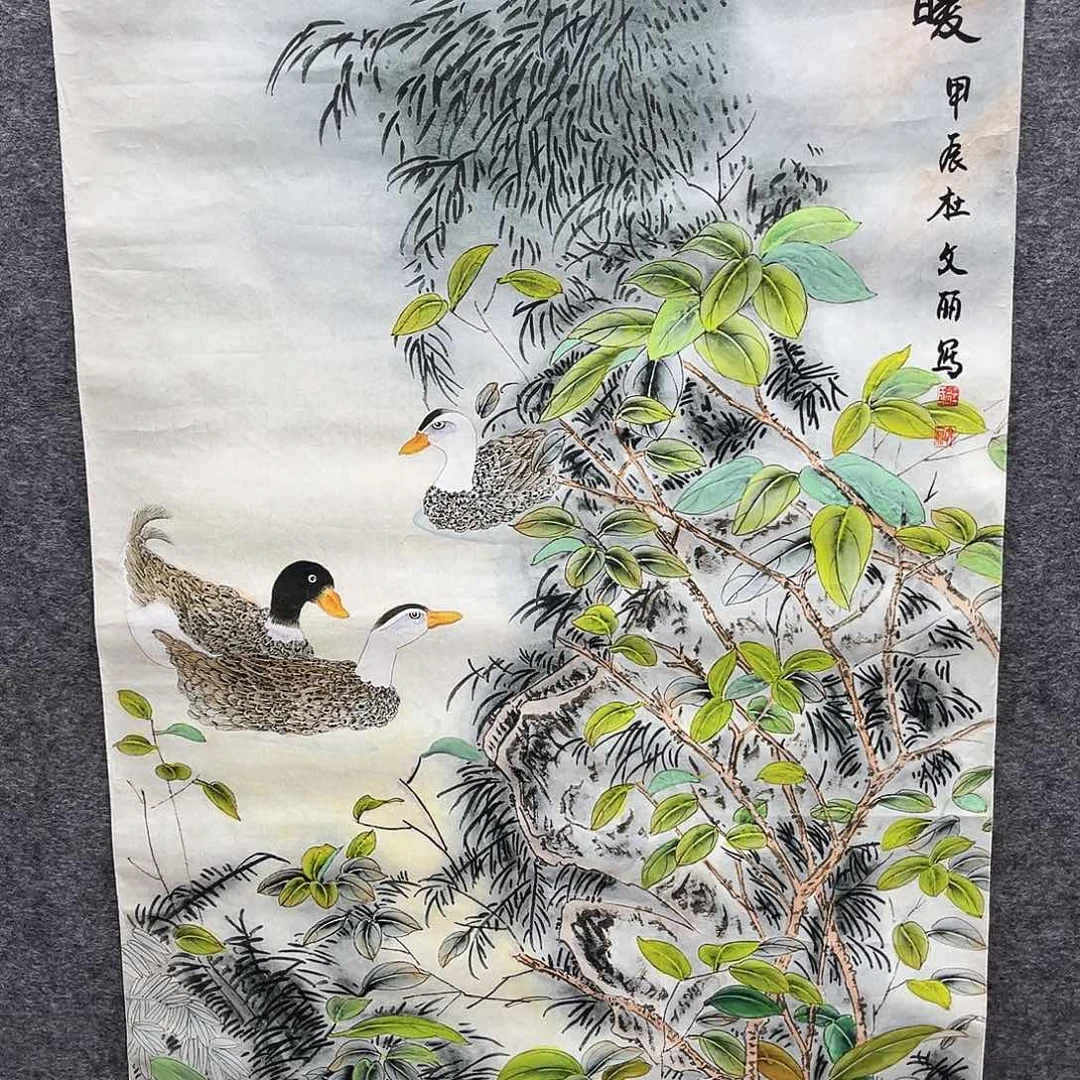 暖
甲辰杜文丽写